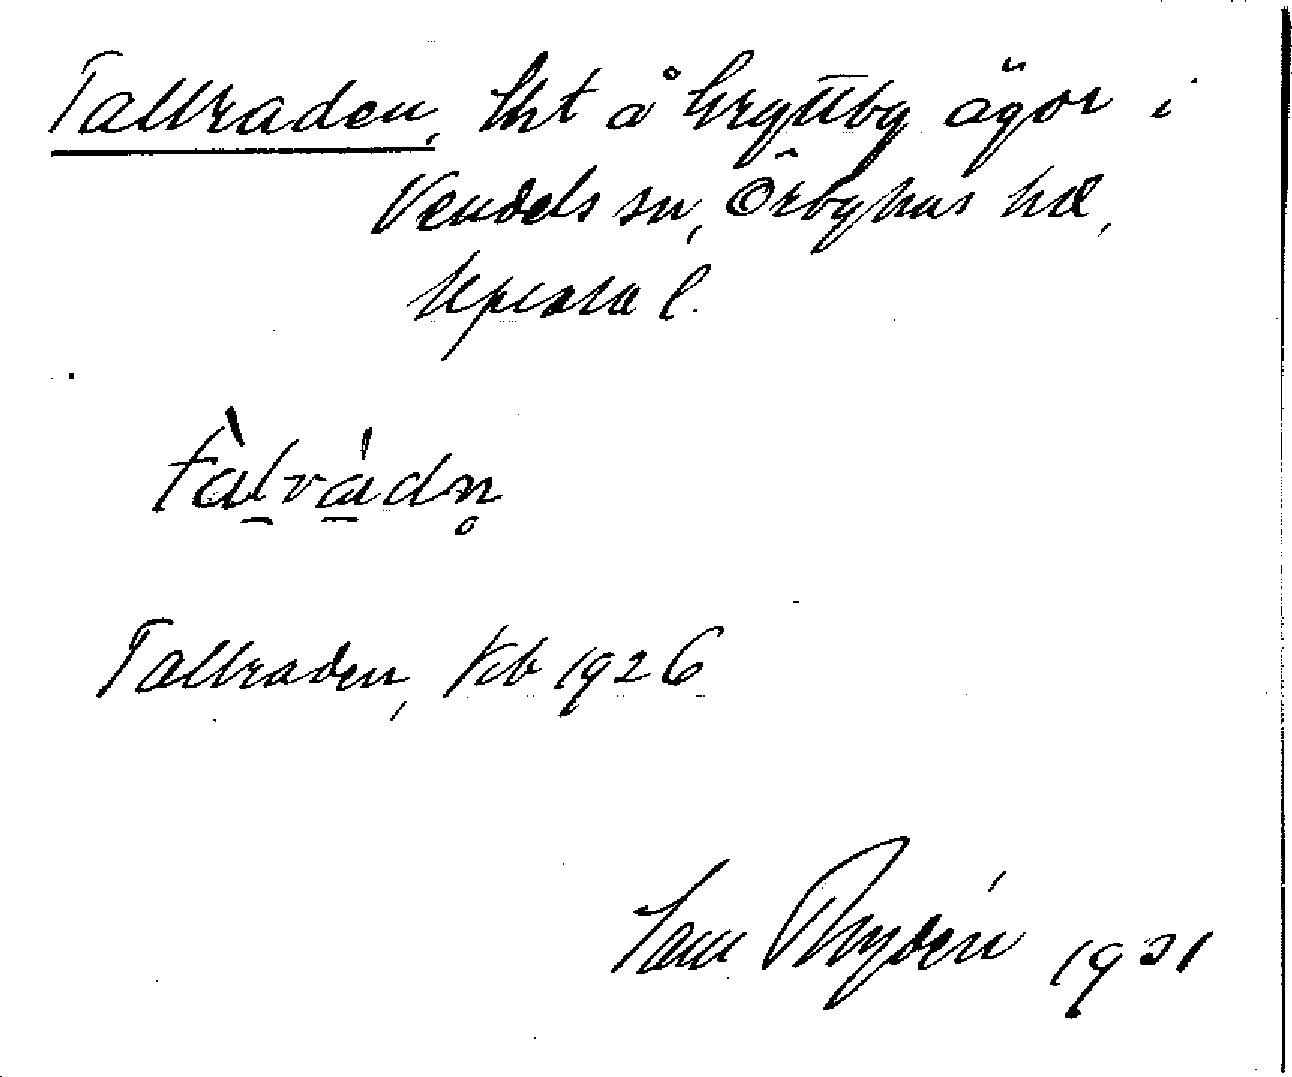 Tallraden, lht å Gryttby ägor i
Vendels sn, Örbyhus hd,
Uppsala l.
tàlrádn̥
Tallraden, Kb 1926
Rydén 1931